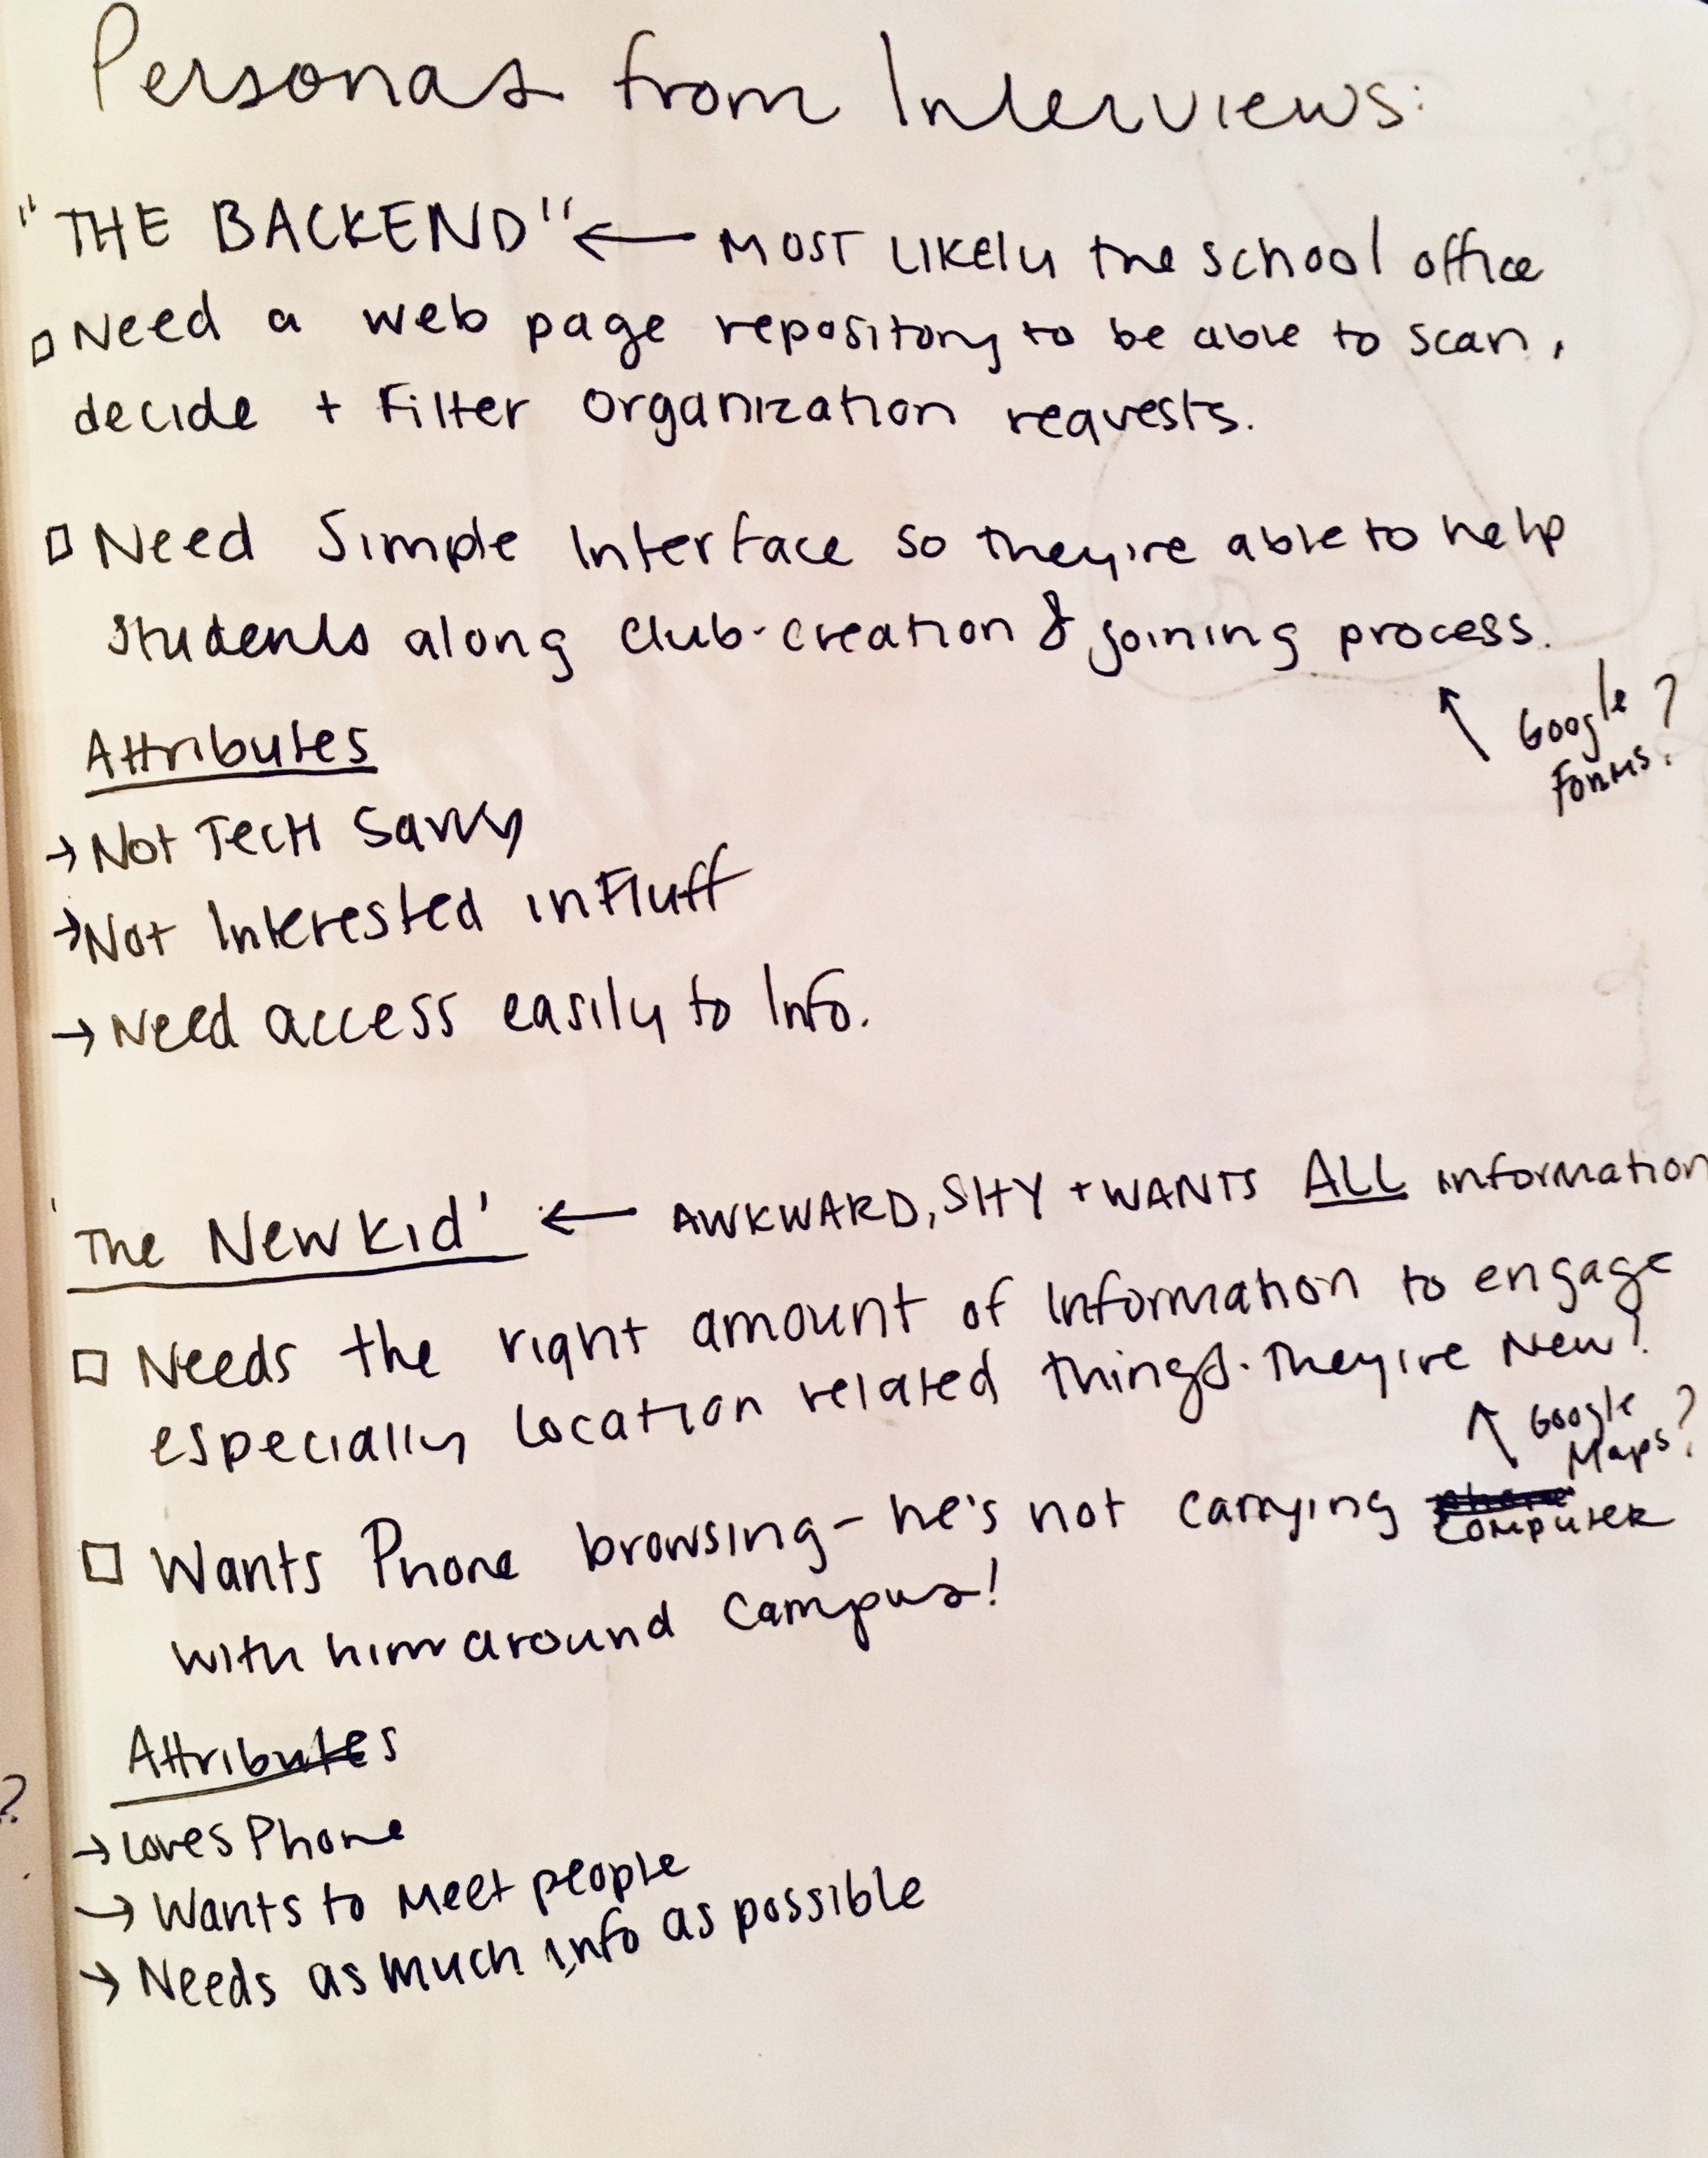 Personas from Interviews:
"THE BACKEND" ← MOST LIKELY the school office
▫ Need a web page repository to be able to scan,
decide + Filter organization requests.
▫ Need Simple Interface so they're able to help
students along club-creation & joining process.
↖ Google
Forms?
Attributes
→ Not Tech Savvy
→ Not Interested in Fluff
→ Need access easily to Info.
'The New Kid' ← AWKWARD, SHY + WANTS ALL information
□ Needs the right amount of Information to engage
especially location related things. They're New!
↖ Google
Maps?
□ Wants Phone browsing - he's not carrying computer
with him around campus!
Attributes
→ Loves Phone
→ Wants to Meet people
→ Needs as much info as possible
?